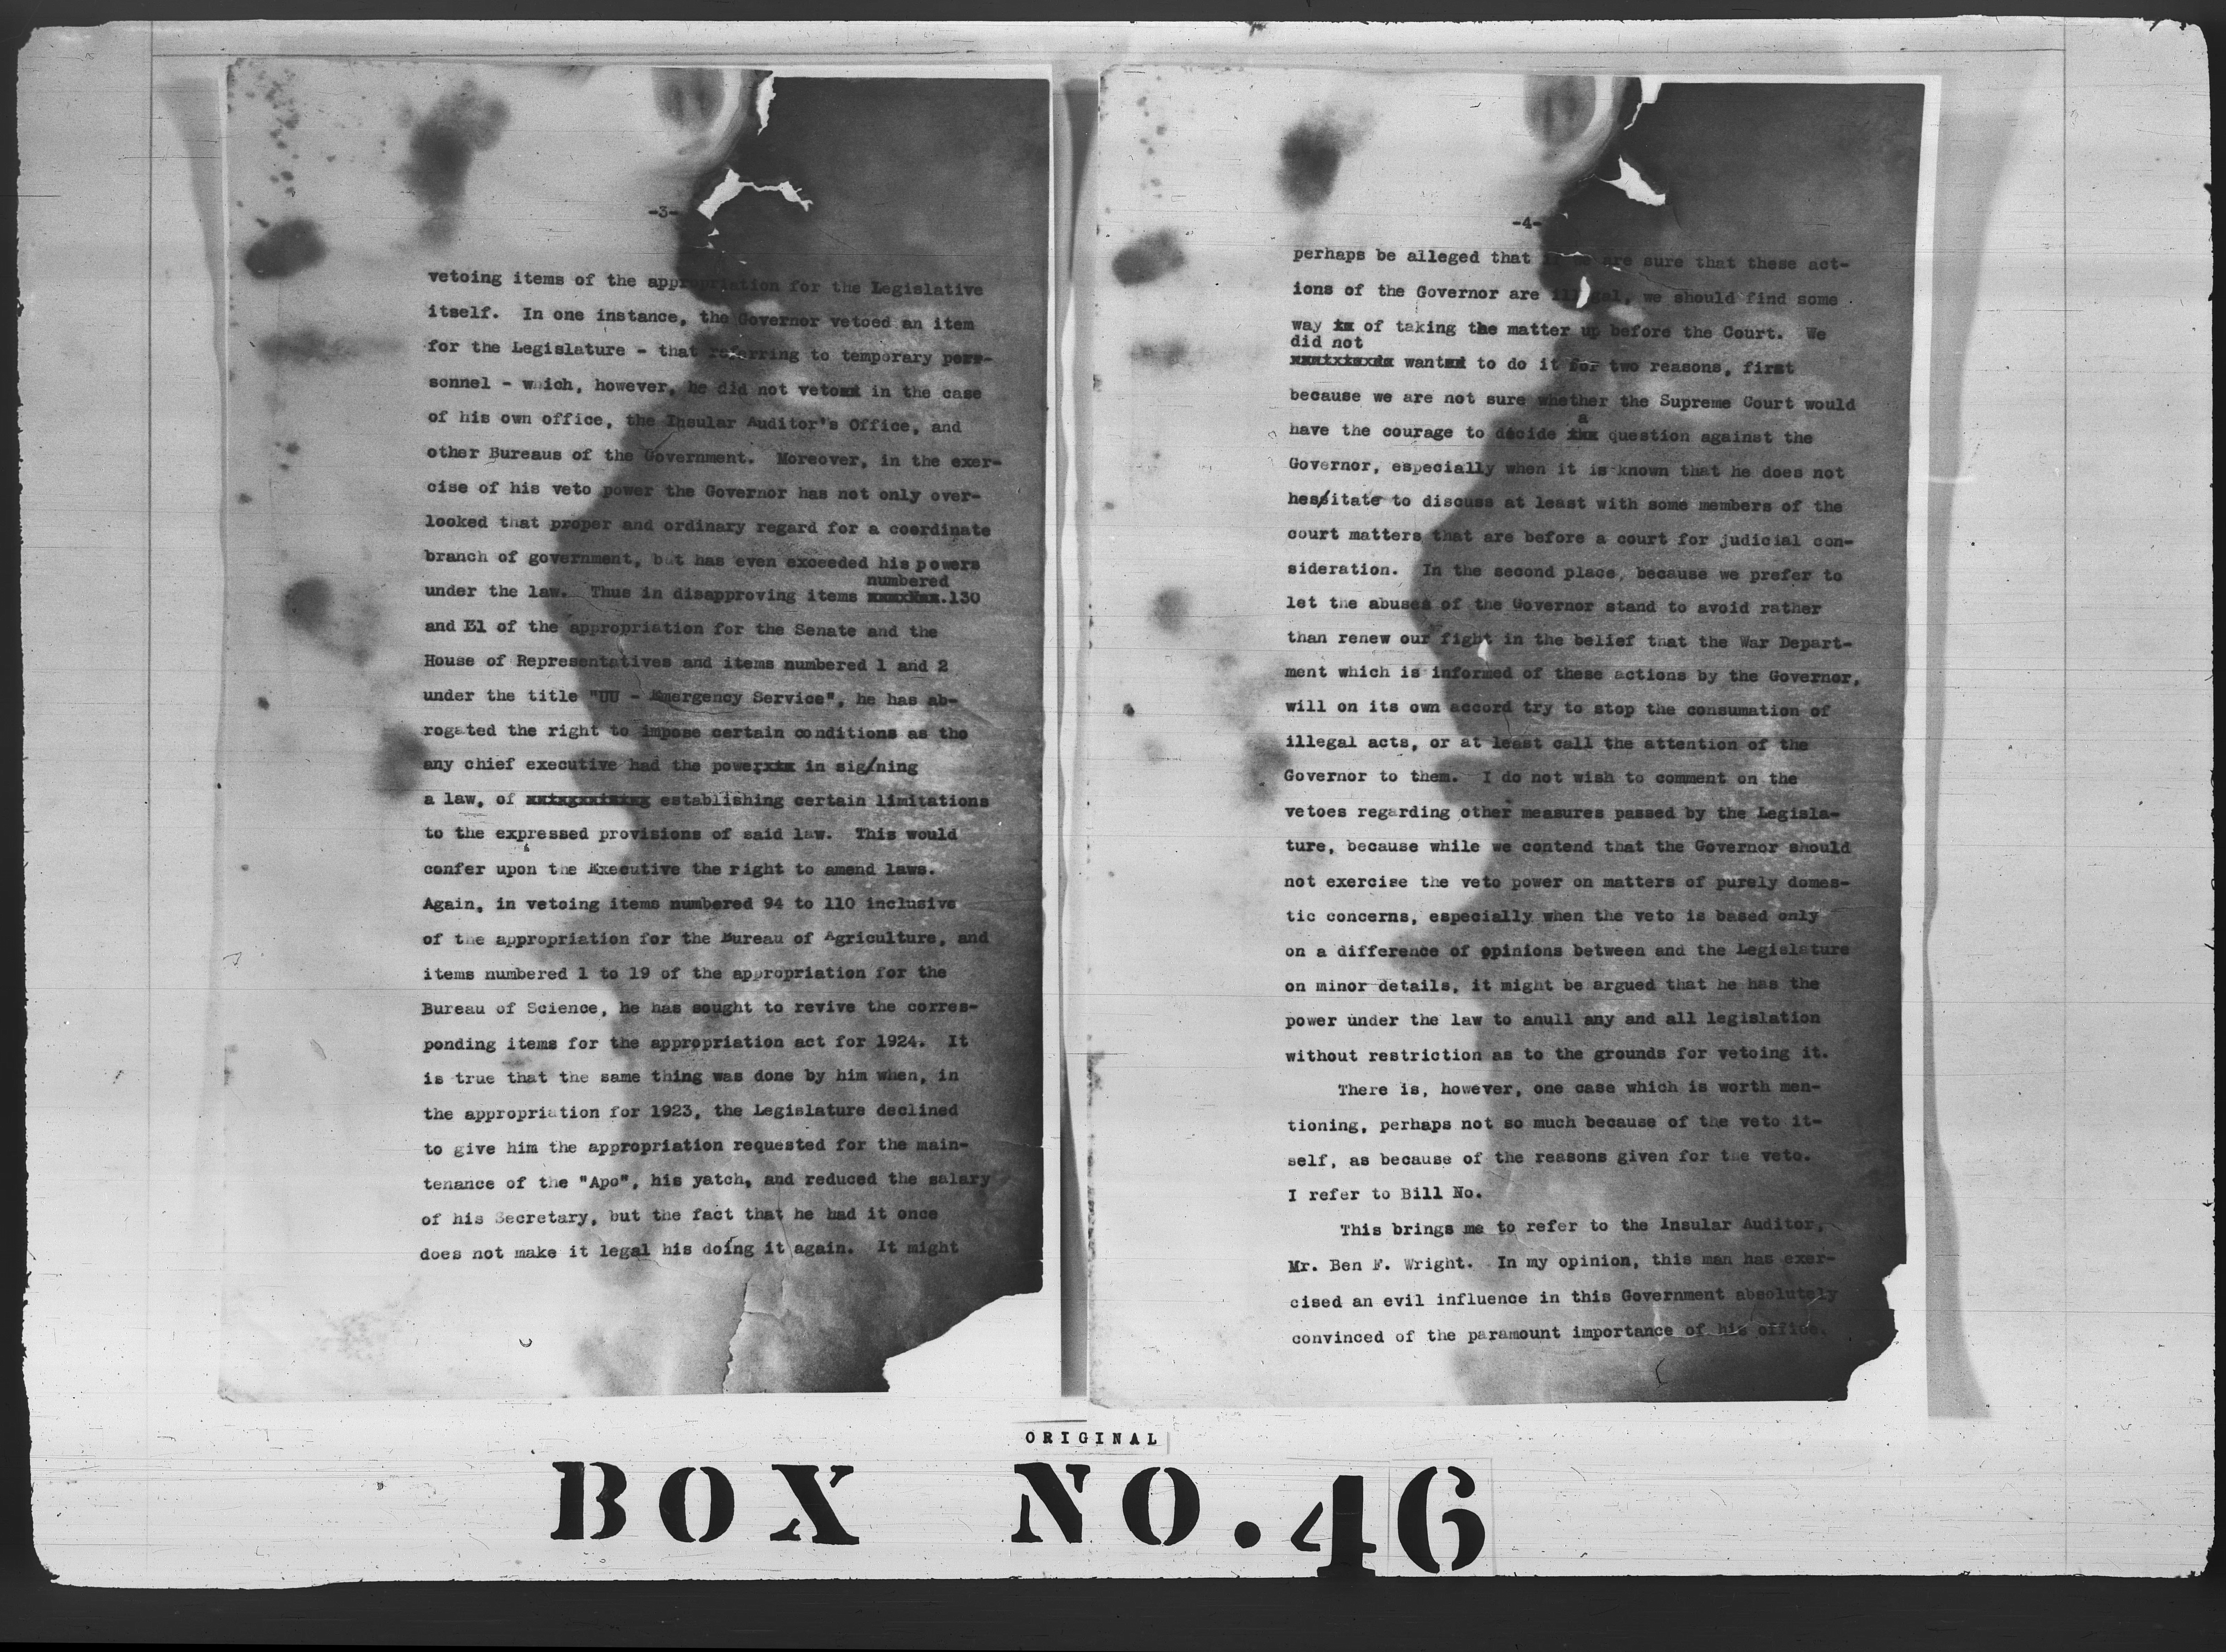 -3-
vetoing items of the appropriation for the Legislative
itself. In one instance, the Governor vetoed an item
for the Legislature - that referring to temporary pers-
sonnel - which, however, he did not veto in the case
of his own office, the Insular Auditor's Office, and
other Bureaus of the Government. Moreover, in the exer-
cise of his veto power the Governor has not only over-
looked that proper and ordinary regard for a coordinate
branch of government, but has even exceeded his powers
numbered
under the law. Thus in disapproving items 130
and El of the appropriation for the Senate and the
House of Representatives and items numbered 1 and 2
under the title "UU - Emergency Service", he has ab-
rogated the right to impose certain conditions as tho
any chief executive had the power in signing
a law, of establishing certain limitations
to the expressed provisions of said law. This would
confer upon the Executive the right to amend laws.
Again, in vetoing items numbered 94 to 110 inclusive
of the appropriation for the Bureau of Agriculture, and
items numbered 1 to 19 of the appropriation for the
Bureau of Science, he has sought to revive the corres-
ponding items for the appropriation act for 1924. It
is true that the same thing was done by him when, in
the appropriation for 1923, the Legislature declined
to give him the appropriation requested for the main-
tenance of the "Apo", his yatch, and reduced the salary
of his Secretary, but the fact that he had it once
does not make it legal his doing it again. It might
-4-
perhaps be alleged that if we are sure that these act-
ions of the Governor are illegal, we should find some
way of taking the matter up before the Court. We
did not
want to do it for two reasons, first
because we are not sure whether the Supreme Court would
a
have the courage to decide question against the
Governor, especially when it is known that he does not
hesitate to discuss at least with some members of the
court matters that are before a court for judicial con-
sideration. In the second place, because we prefer to
let the abuses of the Governor stand to avoid rather
than renew our fight in the belief that the War Depart-
ment which is informed of these actions by the Governor,
will on its own accord try to stop the consumation of
illegal acts, or at least call the attention of the
Governor to them. I do not wish to comment on the
vetoes regarding other measures passed by the Legisla-
ture, because while we contend that the Governor should
not exercise the veto power on matters of purely domes-
tic concerns, especially when the veto is based only
on a difference of opinions between and the Legislature
on minor details, it might be argued that he has the
power under the law to anull any and all legislation
without restriction as to the grounds for vetoing it.
There is, however, one case which is worth men-
tioning, perhaps not so much because of the veto it-
self, as because of the reasons given for the veto.
I refer to Bill No.
This brings me to refer to the Insular Auditor,
Mr. Ben F. Wright. In my opinion, this man has exer-
cised an evil influence in this Government absolutely
convinced of the paramount importance of his office.
ORIGINAL
BOX NO. 46